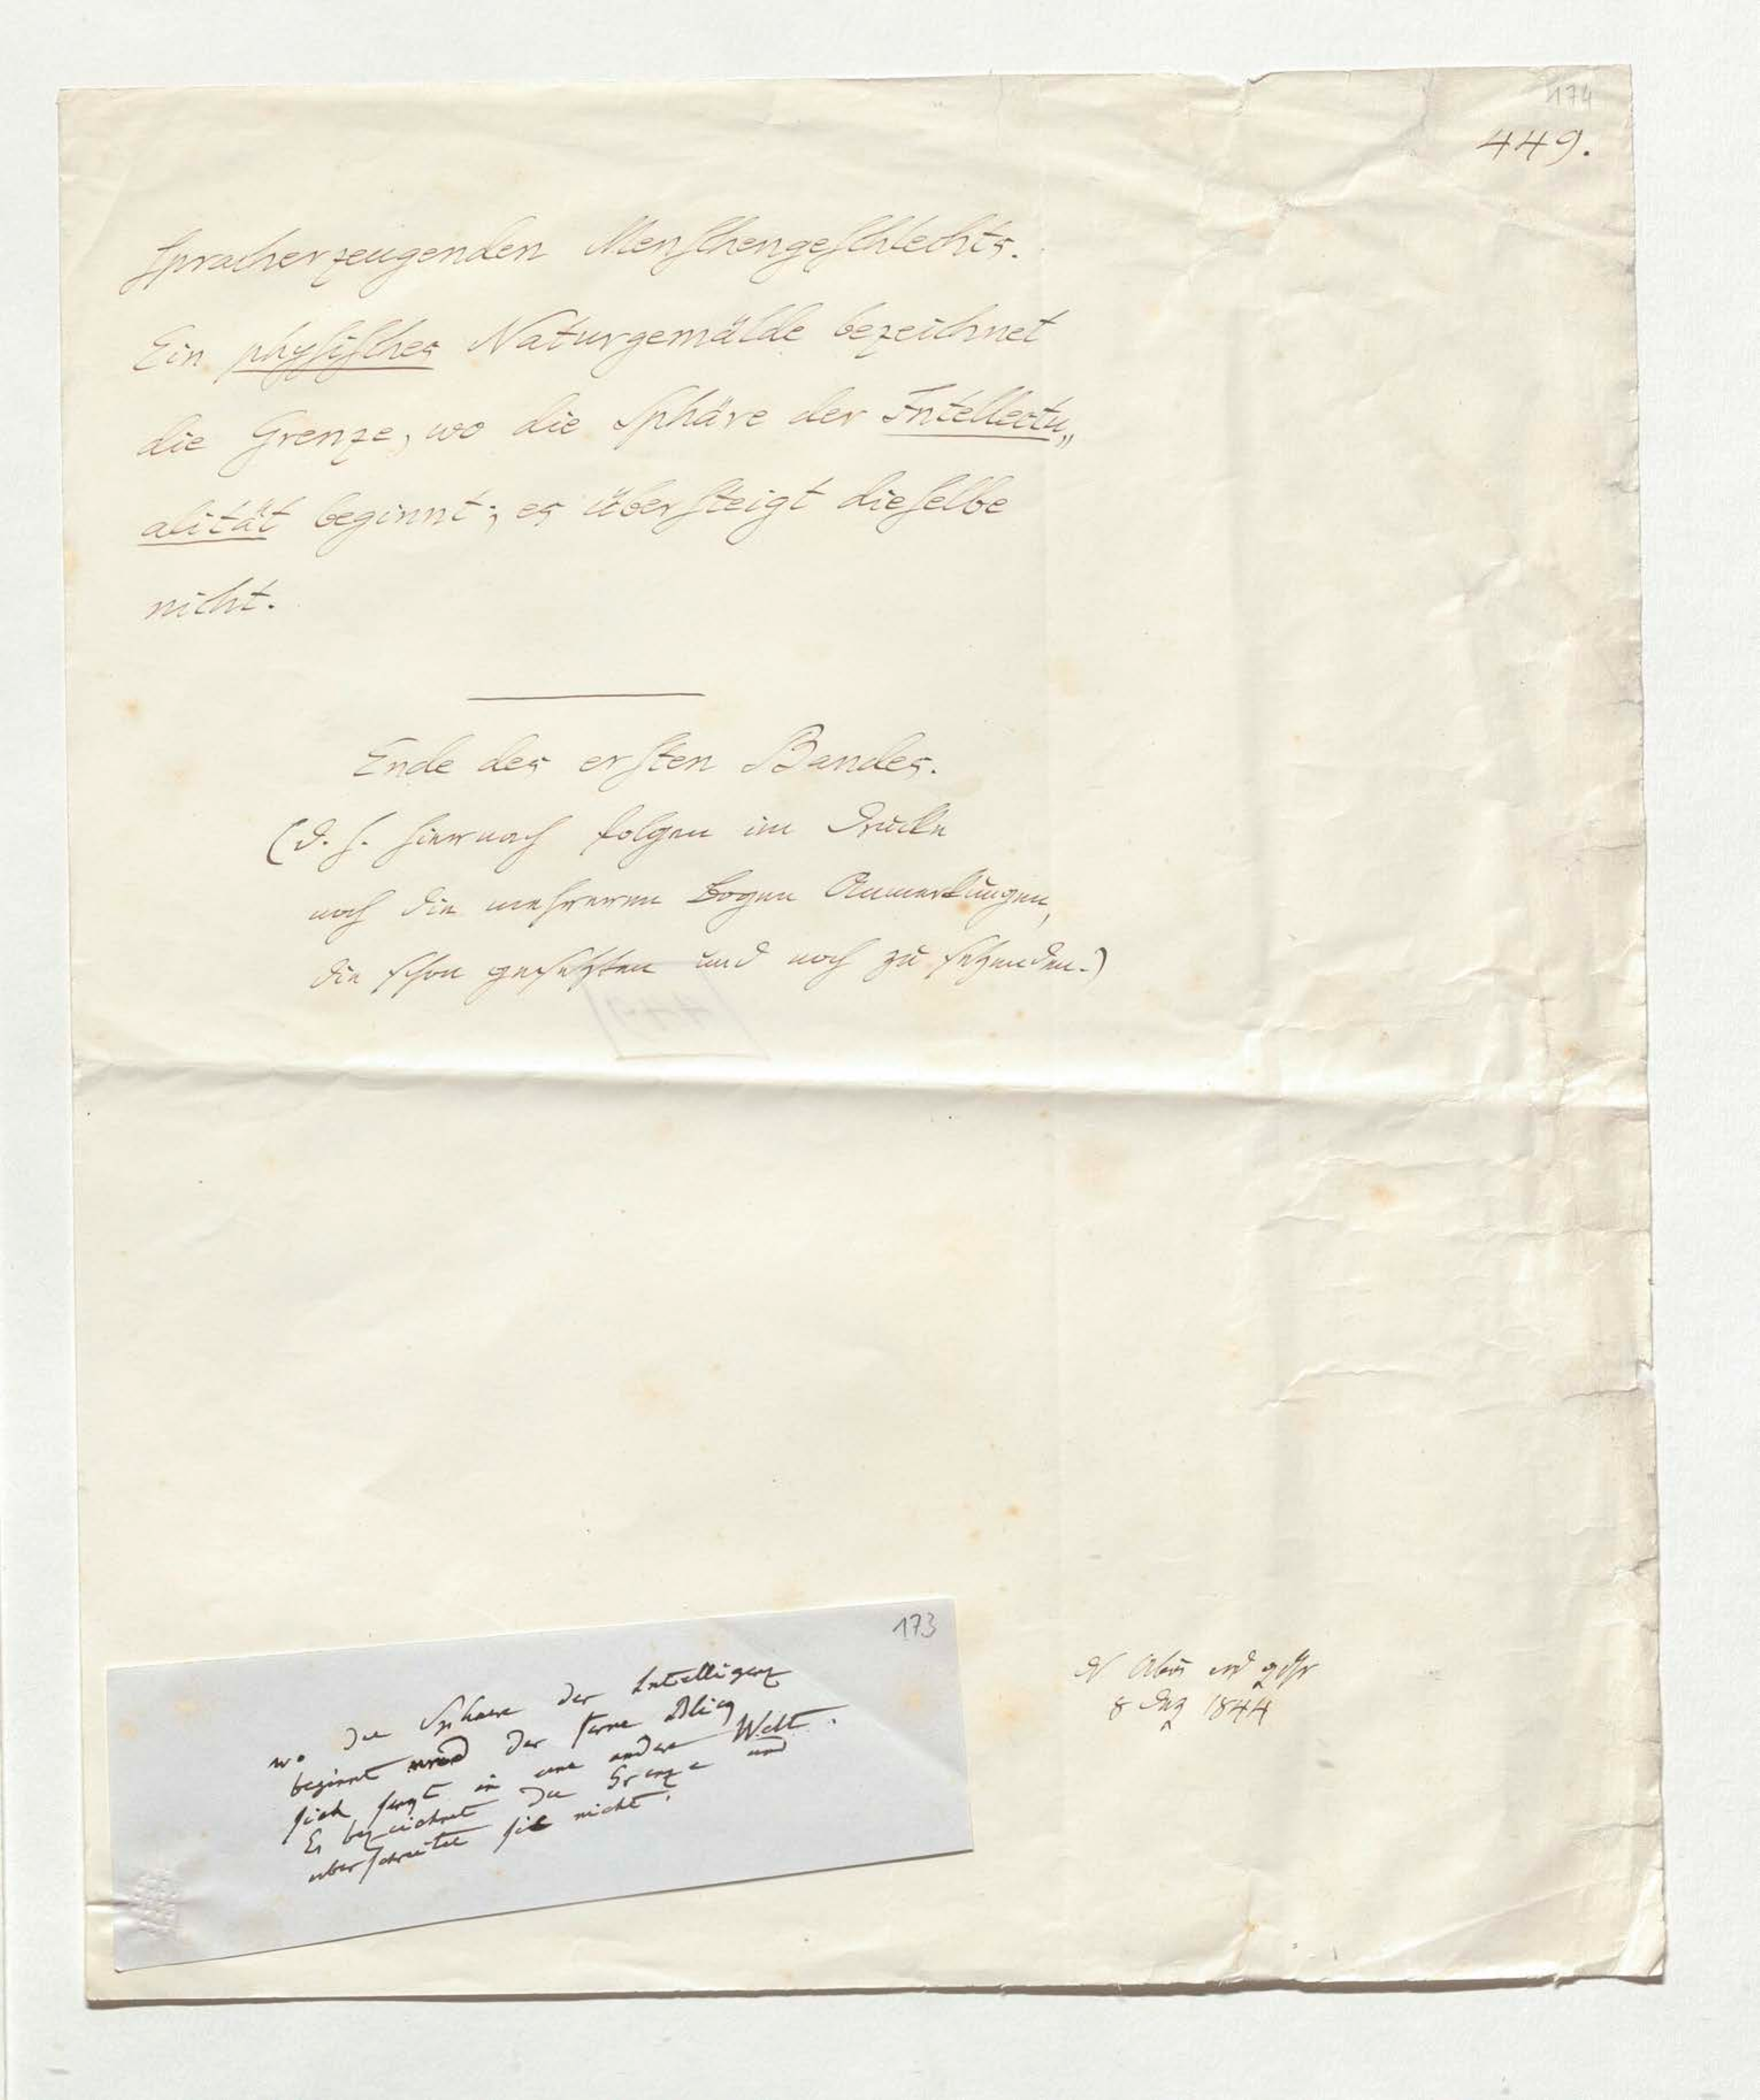 174
449.
spracherzeugenden Menschengeschlechts.
Ein physisches Naturgemälde bezeichnet
die Grenze, wo die Sphäre der Intellectu„
alität beginnt; es übersteigt dieselbe
nicht.
Ende des ersten Bandes.
(d. h. hiernach folgen im Drucke
noch die mehreren Bogen Anmerkungen,
die schon gesetzten und noch zu setzenden.)
173
wo die Sphaere der Intelligenz
beginnt und der ferne Blick
sich senkt in eine andere Welt.
Es bezeichnet die Grenze und
überschreitet sie nicht.
8 1844